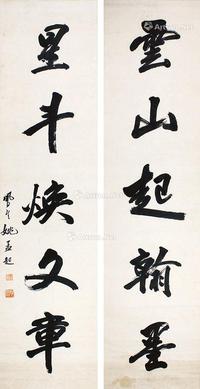 雲山起翰墨
星斗煥文章
鳳生姚孟起